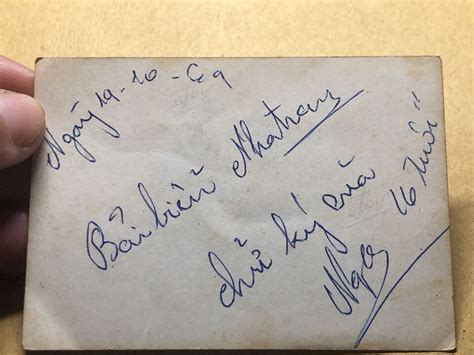 Ngày 19-10-69
Bải biển Nhatrang
chữ ký của
Nga 16 tuổi